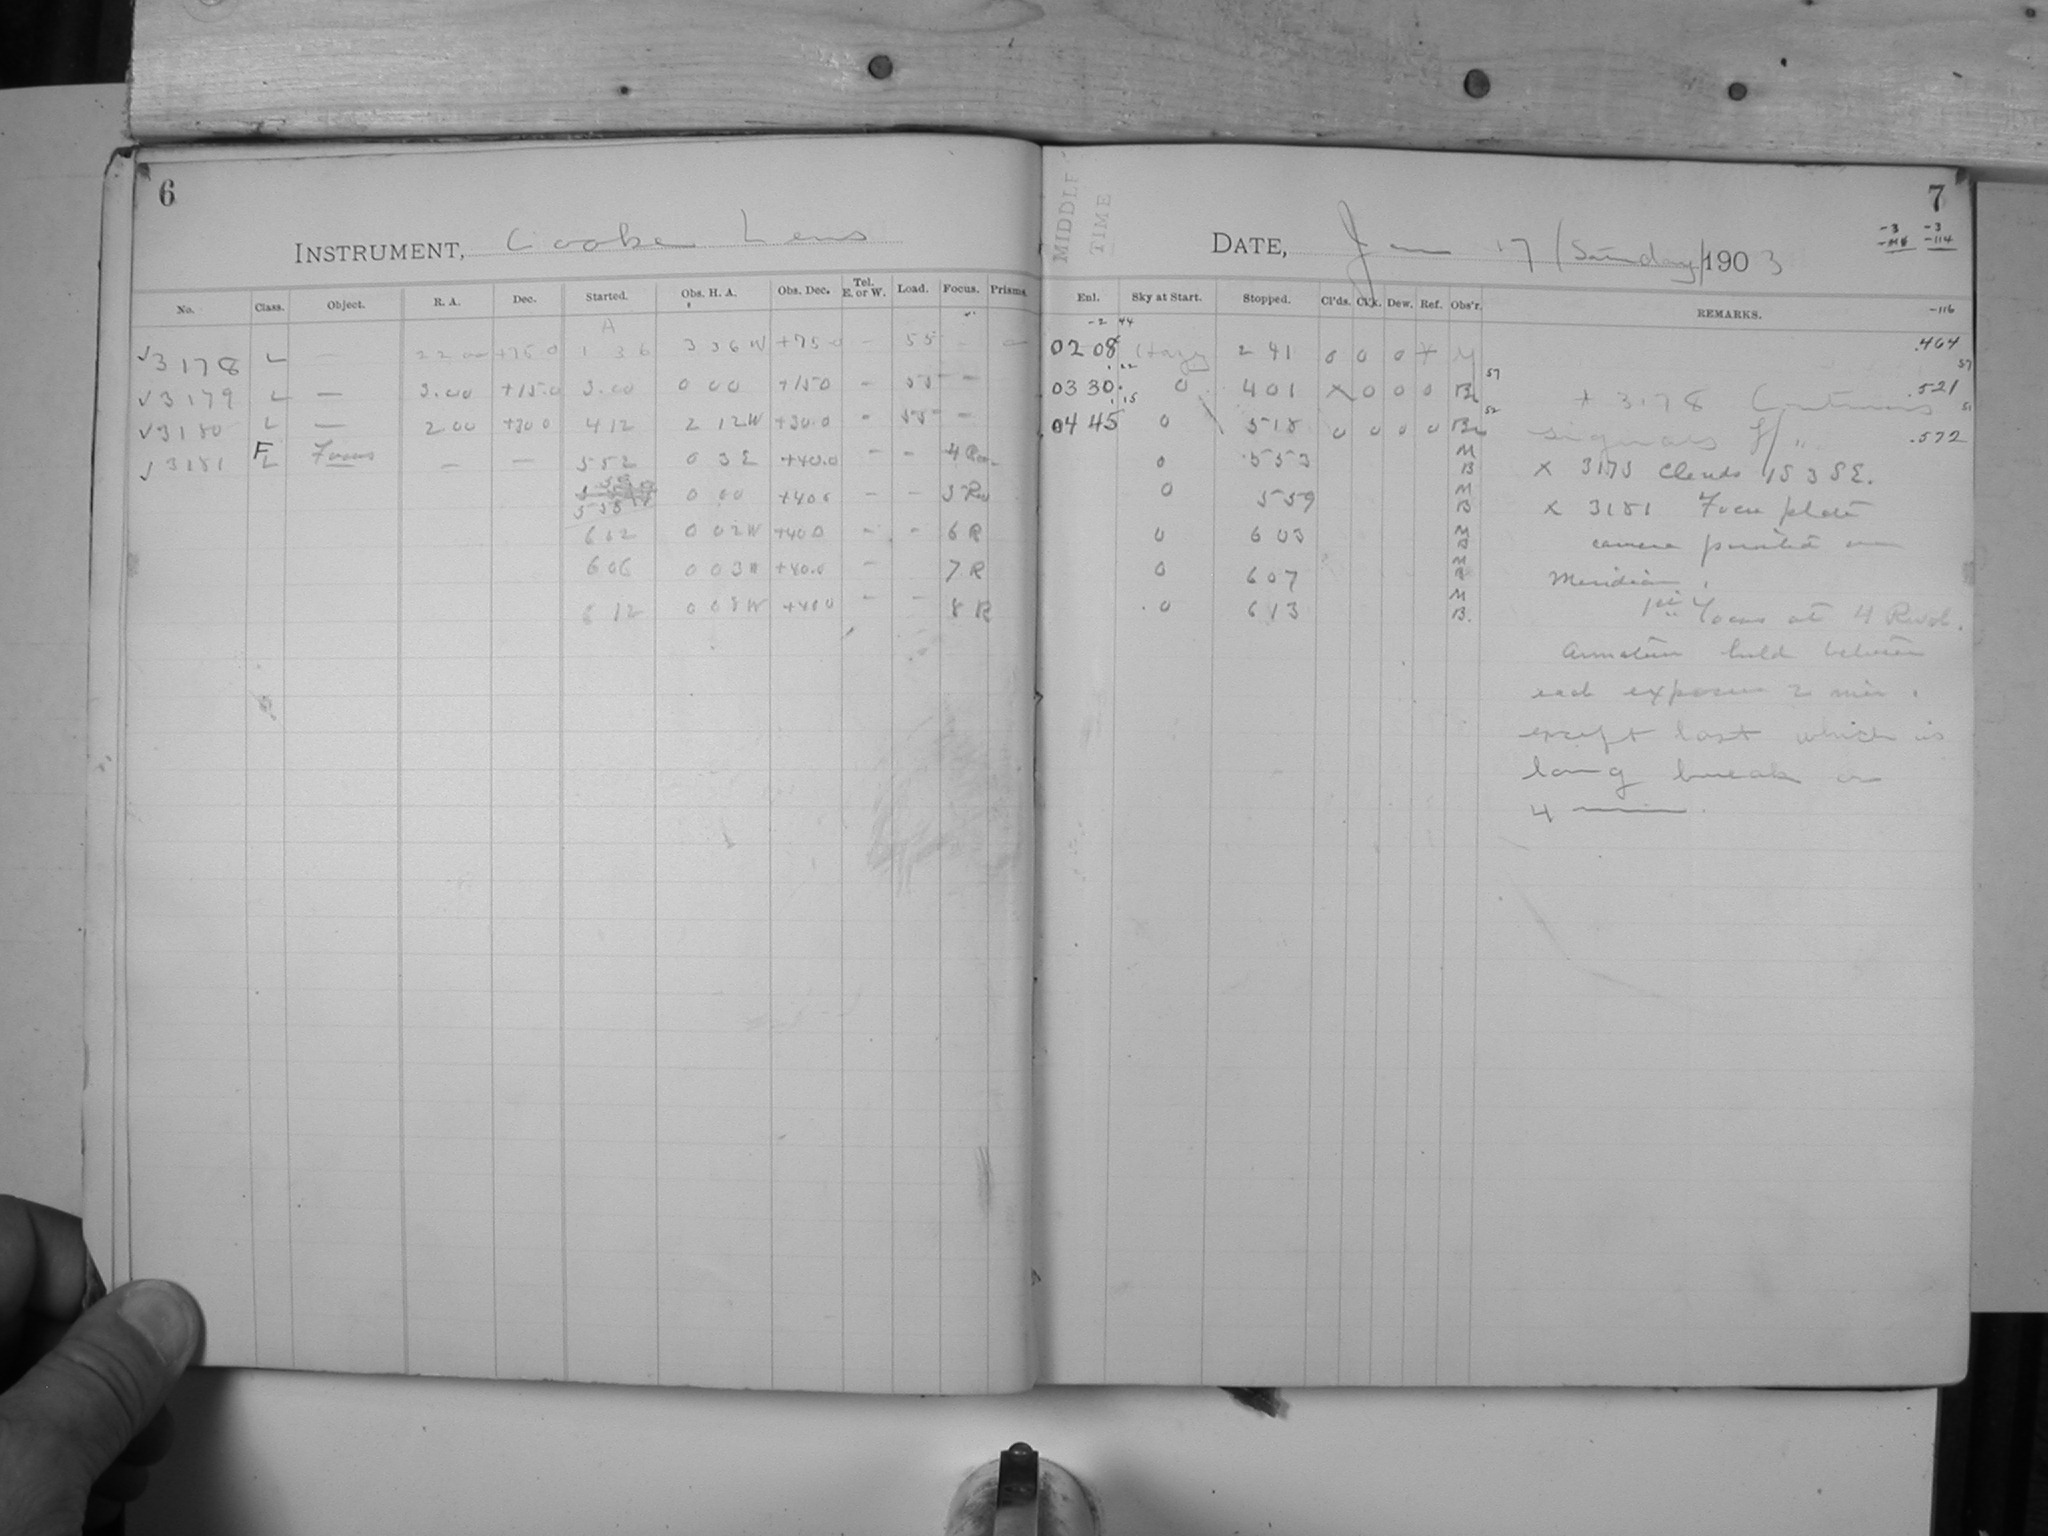 6
INSTRUMENT, Cooke Lens
No. Class. Object. R. A. Dec. Started. Obs. H. A. Obs. Dec. Tel. E. or W. Load. Focus. Prisms.
A
√3178 L — 22 00 +75.0 1 36 3 36 W +75.0 – 55 – –
√3179 L — 3.00 +15.0 3.00 0 00 +15.0 – 55 –
√3180 L — 2 00 +30.0 4 12 2 12W +30.0 – 55 –
√3181 F L Focus — — 5 52 0 3 E +40.0 – – 4 Rev.
5 58 0 00 +40.0 – – 5 Rev
6 02 0 02W +40.0 – – 6 R
6 06 0 03W +40.0 – 7 R
6 12 0 08W +40.0 – – 8 R
7
MIDDLE
TIME
DATE, Jan 17 (Sunday) 1903
-3 -3
-114
Enl. Sky at Start. Stopped. Cl'ds. Cl'k. Dew. Ref. Obs'r. REMARKS. -116
-2 44
02 08 Hazy 2 41 0 0 0 + M .464
22 57 57
03 30. 0 4 01 X 0 0 0 .521
15 52 51
04 45 0 5 18 0 0 0 0 .572
0 5 53 M B
0 5 59 M B
0 6 03 M B
0 6 07 M B
0 6 13 M B.
+ 3178 Continuous
signals
X 317 Clouds 15 3 SE.
X 3181 Focus plate
camera pointed on
Meridian.
1st Focus at 4 Revol.
Armature held between
each exposure 2 min.
except last which is
long break or
4 min.